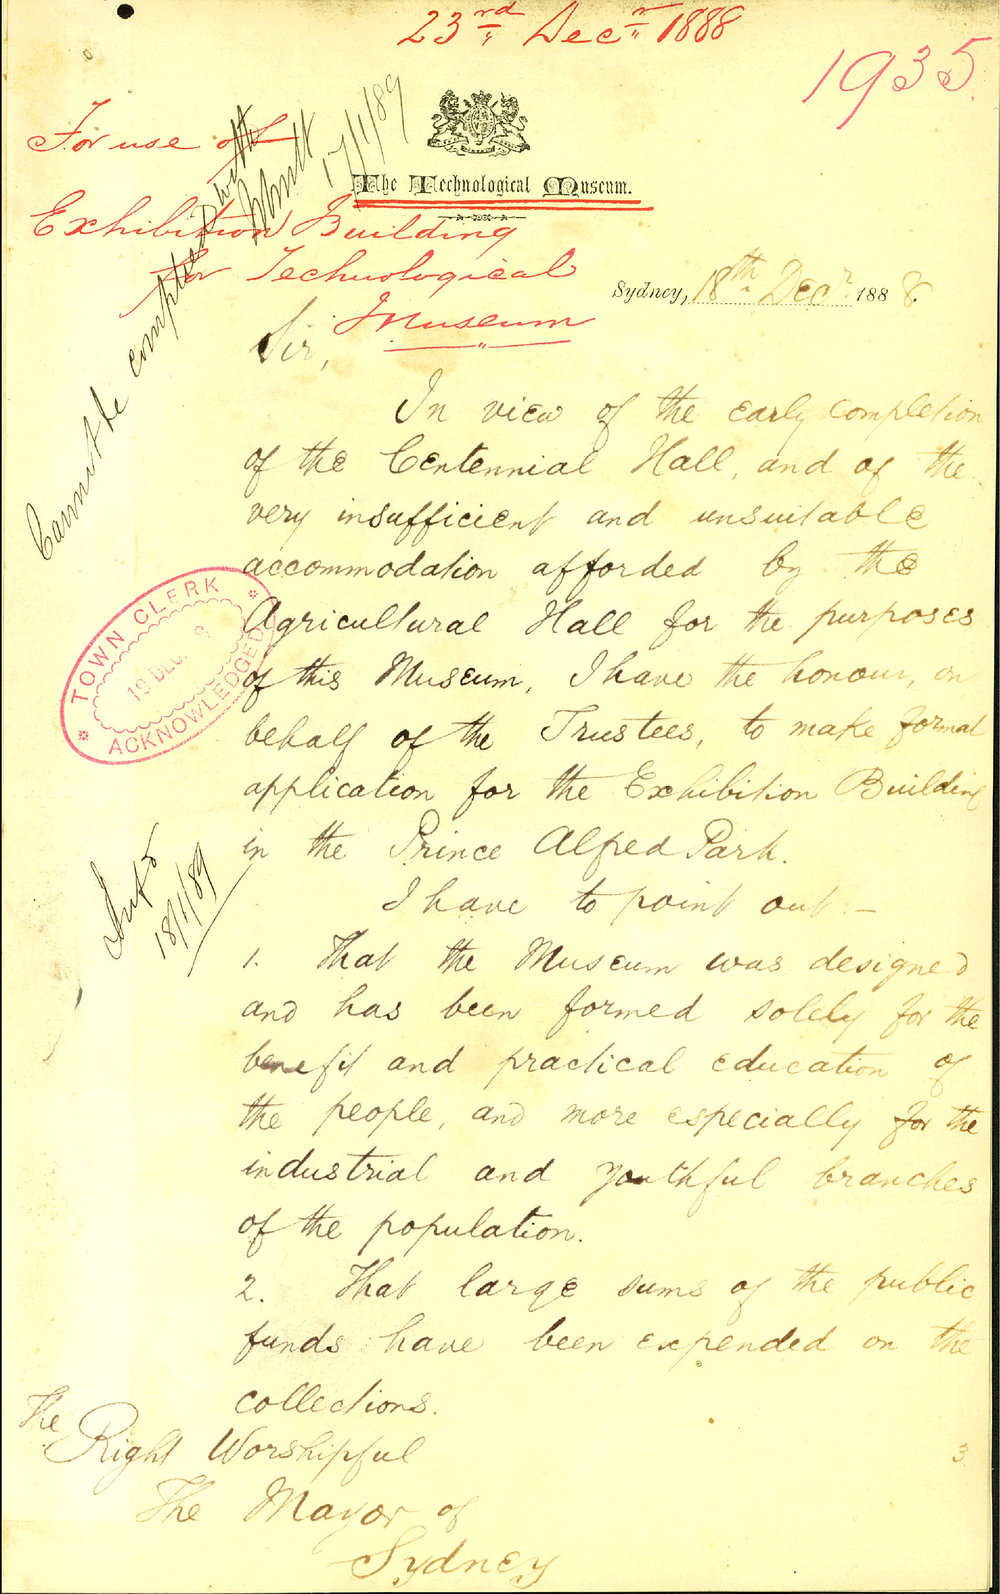 23rd Decr 1888
1935
For use of
Exhibition Building
for Technological
Museum
Cannot be complied with
17/1/89
The Technological Museum.
Sydney, 18th Decr 1888.
Sir,
In view of the early completion
of the Centennial Hall, and of the
very insufficient and unsuitable
accommodation afforded by the
Agricultural Hall for the purposes
of this Museum, I have the honour, on
behalf of the Trustees, to make formal
application for the Exhibition Building
in the Prince Alfred Park.
I have to point out –
1. That the Museum was designed
and has been formed solely for the
benefit and practical education of
the people, and more especially for the
industrial and youthful branches
of the population.
2. That large sums of the public
funds have been expended on the
collections.
TOWN CLERK
19 Dec. 8
ACKNOWLEDGED
18/1/89
The
Right Worshipful
The Mayor of
Sydney
3